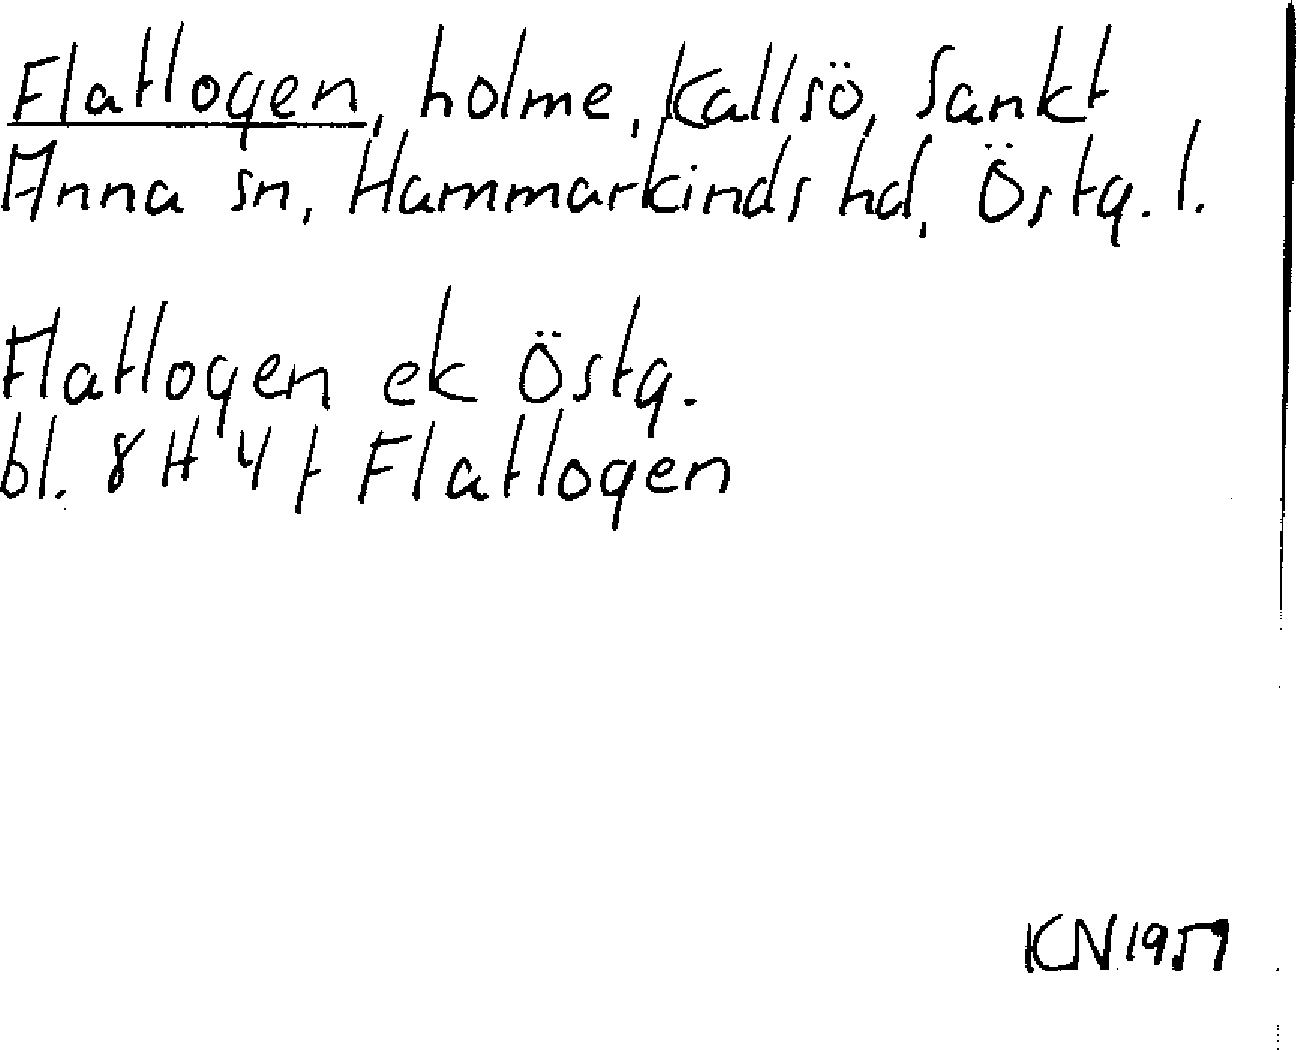 Flatlogen, holme, Kallsö, Sankt
Anna sn, Hammarkinds hd, Östg. l.
Flatlogen ek Östg.
bl. 8 H 4 f Flatlogen
KN 1957